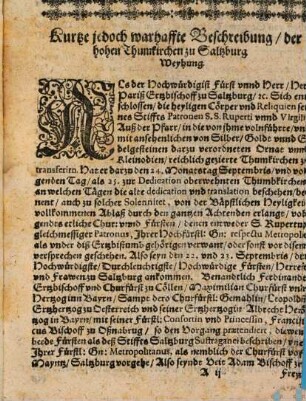 Kurtze jedoch warhaffte Beschreibung / der
hohen Thumkirchen zu Saltzburg
Weyhung.
der Hochwürdigist Fürst vnnd Herr /
Pariß Ertzbischoff zu Saltzburg / ꝛc. Sich
schlossen / die heyligen Cörper vnd Reliquien
nes Stiffts Patronen S. S. Ruperti vnd Virgilij
Auß der Pfarr / in die von jhme volnführte / vn
mit ansehenlichen von Silber / Gold / vnnd
delgesteinen darzu verordneten Ornat vnn
Kleinodien / reichlich gezierte Thumkirchen
transferirn. Hat er darzu den 24. Monatstag Septembris / vnd vol
genden Tag / als 25. zur Dedication oberwehnten Thumkirchen
an welchen Tägen die alte dedication vnd translation beschehen / be
nent / auch zu solcher Solennitet / von der Bäpstlichen Heyligkeit
vollkommenen Ablaß durch den gantzen Achtenden erlangt /
gendts etliche Chur: vnnd Fürsten / denen eintweder S. Rupertus
gleichmessiger Patron / Jhrer Hochfürstl: Gn: respectu Metropoli
als vnder diß Ertzbistumb gehörig verwant / oder sonst vor disem
versprechen geschehen. Also seyn den 22. vnd 23. Septembris / die
Hochwürdigste / Durchleuchtigste / Hochwürdige Fürsten / Herren
vnd Frawen zu Saltzburg ankommen. Benandtlich Ferdinandt
Ertzbischoff vnd Churfürst zu Cöllen / Maximilian Churfürst vnd
Hertzog inn Bayrn / Sampt dero Churfürstl: Gemahlin / Leopold
Ertzhertzog zu Oesterreich vnd seiner Ertzhertzogin / Albrecht Her
tzog in Bayrn / mit seiner Fürstl: Consortin vnd Princessin / Francis
cus Bischoff zu Oßnabrug / so den Vorgang prætendiert /
beede Fürsten als deß Stiffts Saltzburg Suffraganei beschriben / vnd
Jhrer Fürstl: Gn: Metropolitanus, als nemblich der Churfürst von
Mayntz / Saltzburg vorgehe / Also seynde Veit Adam Bischoff
A ij
Frey